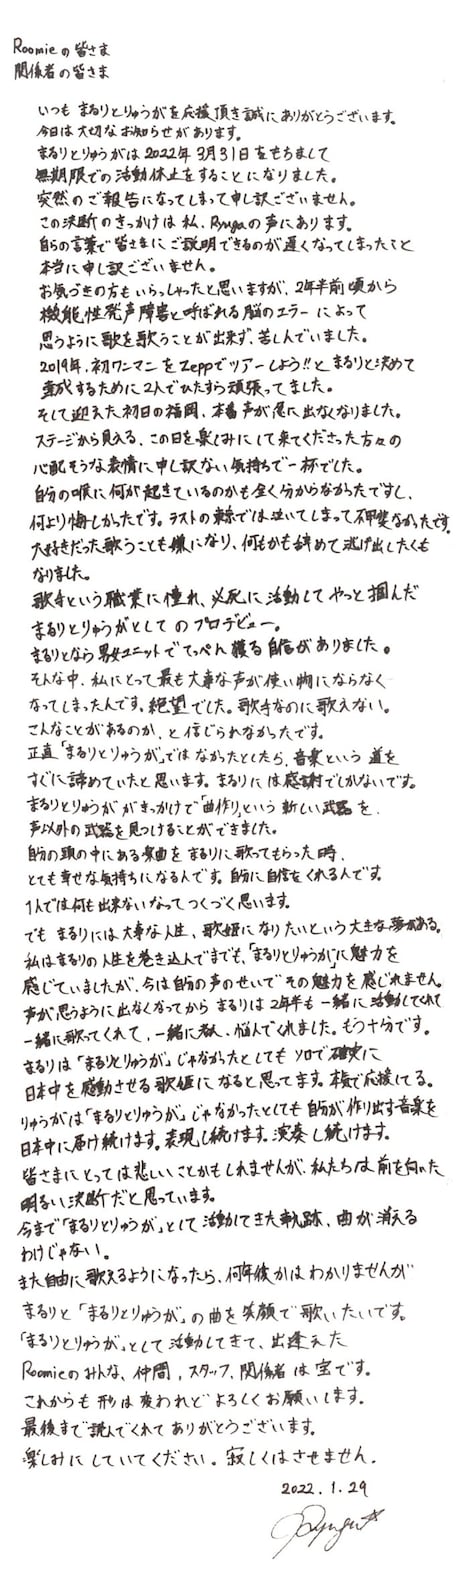 Roomieの皆さま
関係者の皆さま
いつも まるりとりゅうがを応援頂き誠にありがとうございます。
今日は大切なお知らせがあります。
まるりとりゅうがは2022年3月31日をもちまして
無期限での活動休止をすることになりました。
突然のご報告になってしまって申し訳ございません。
この決断のきっかけは私、Ryugaの声にあります。
自らの言葉で皆さまにご説明できるのが遅くなってしまったこと
本当に申し訳ございません。
お気づきの方もいらっしゃったと思いますが、2年半前頃から
機能性発声障害と呼ばれる脳のエラーによって
思うように歌を歌うことが出来ず、苦しんでいました。
2019年、初ワンマンをZeppでツアーしよう!!とまるりと決めて
達成するために2人でひたすら頑張ってました。
そして迎えた初日の福岡、本番声が急に出なくなりました。
ステージから見える、この日を楽しみにして来てくださった方々の
心配そうな表情に申し訳ない気持ちで一杯でした。
自分の喉に何が起きているのかも全く分からなかったですし、
何より悔しかったです。ラストの東京では泣いてしまって不甲斐なかったです。
大好きだった歌うことも嫌になり、何もかも辞めて逃げ出したくも
なりました。
歌手という職業に憧れ、必死に活動してやっと掴んだ
まるりとりゅうがとしてのプロデビュー。
まるりとなら男女ユニットでてっぺん獲る自信がありました。
そんな中、私にとって最も大事な声が使い物にならなく
なってしまったんです。絶望でした。歌手なのに歌えない。
こんなことがあるのか、と信じられなかったです。
正直「まるりとりゅうが」ではなかったとしたら、音楽という道を
すぐに諦めていたと思います。まるりには感謝でしかないです。
まるりとりゅうががきっかけで「曲作り」という新しい武器を、
声以外の武器を見つけることができました。
自分の頭の中にある楽曲をまるりに歌ってもらった時、
とても幸せな気持ちになる人です。自分に自信をくれる人です。
1人では何も出来ないなってつくづく思います。
でもまるりには大事な人生、歌姫になりたいという大きな夢がある。
私はまるりの人生を巻き込んでまでも、「まるりとりゅうが」に魅力を
感じていましたが、今は自分の声のせいでその魅力を感じれません。
声が思うように出なくなってからまるりは2年半も一緒に活動してくれて
一緒に歌ってくれて、一緒に考え、悩んでくれました。もう十分です。
まるりは「まるりとりゅうが」じゃなかったとしてもソロで確実に
日本中を感動させる歌姫になると思ってます。本気で応援してる。
りゅうがは「まるりとりゅうが」じゃなかったとしても自分が作り出す音楽を
日本中に届け続けます。表現し続けます。演奏し続けます。
皆さまにとっては悲しいことかもしれませんが、私たちは前を向いた
明るい決断だと思っています。
今まで「まるりとりゅうが」として活動してきた軌跡、曲が消える
わけじゃない。
また自由に歌えるようになったら、何年後かはわかりませんが
まるりと「まるりとりゅうが」の曲を笑顔で歌いたいです。
「まるりとりゅうが」として活動してきて、出逢えた
Roomieのみんな、仲間、スタッフ、関係者は宝です。
これからも形は変われどよろしくお願いします。
最後まで読んでくれてありがとうございます。
楽しみにしていてください。寂しくはさせません。
2022.1.29
Ryuga